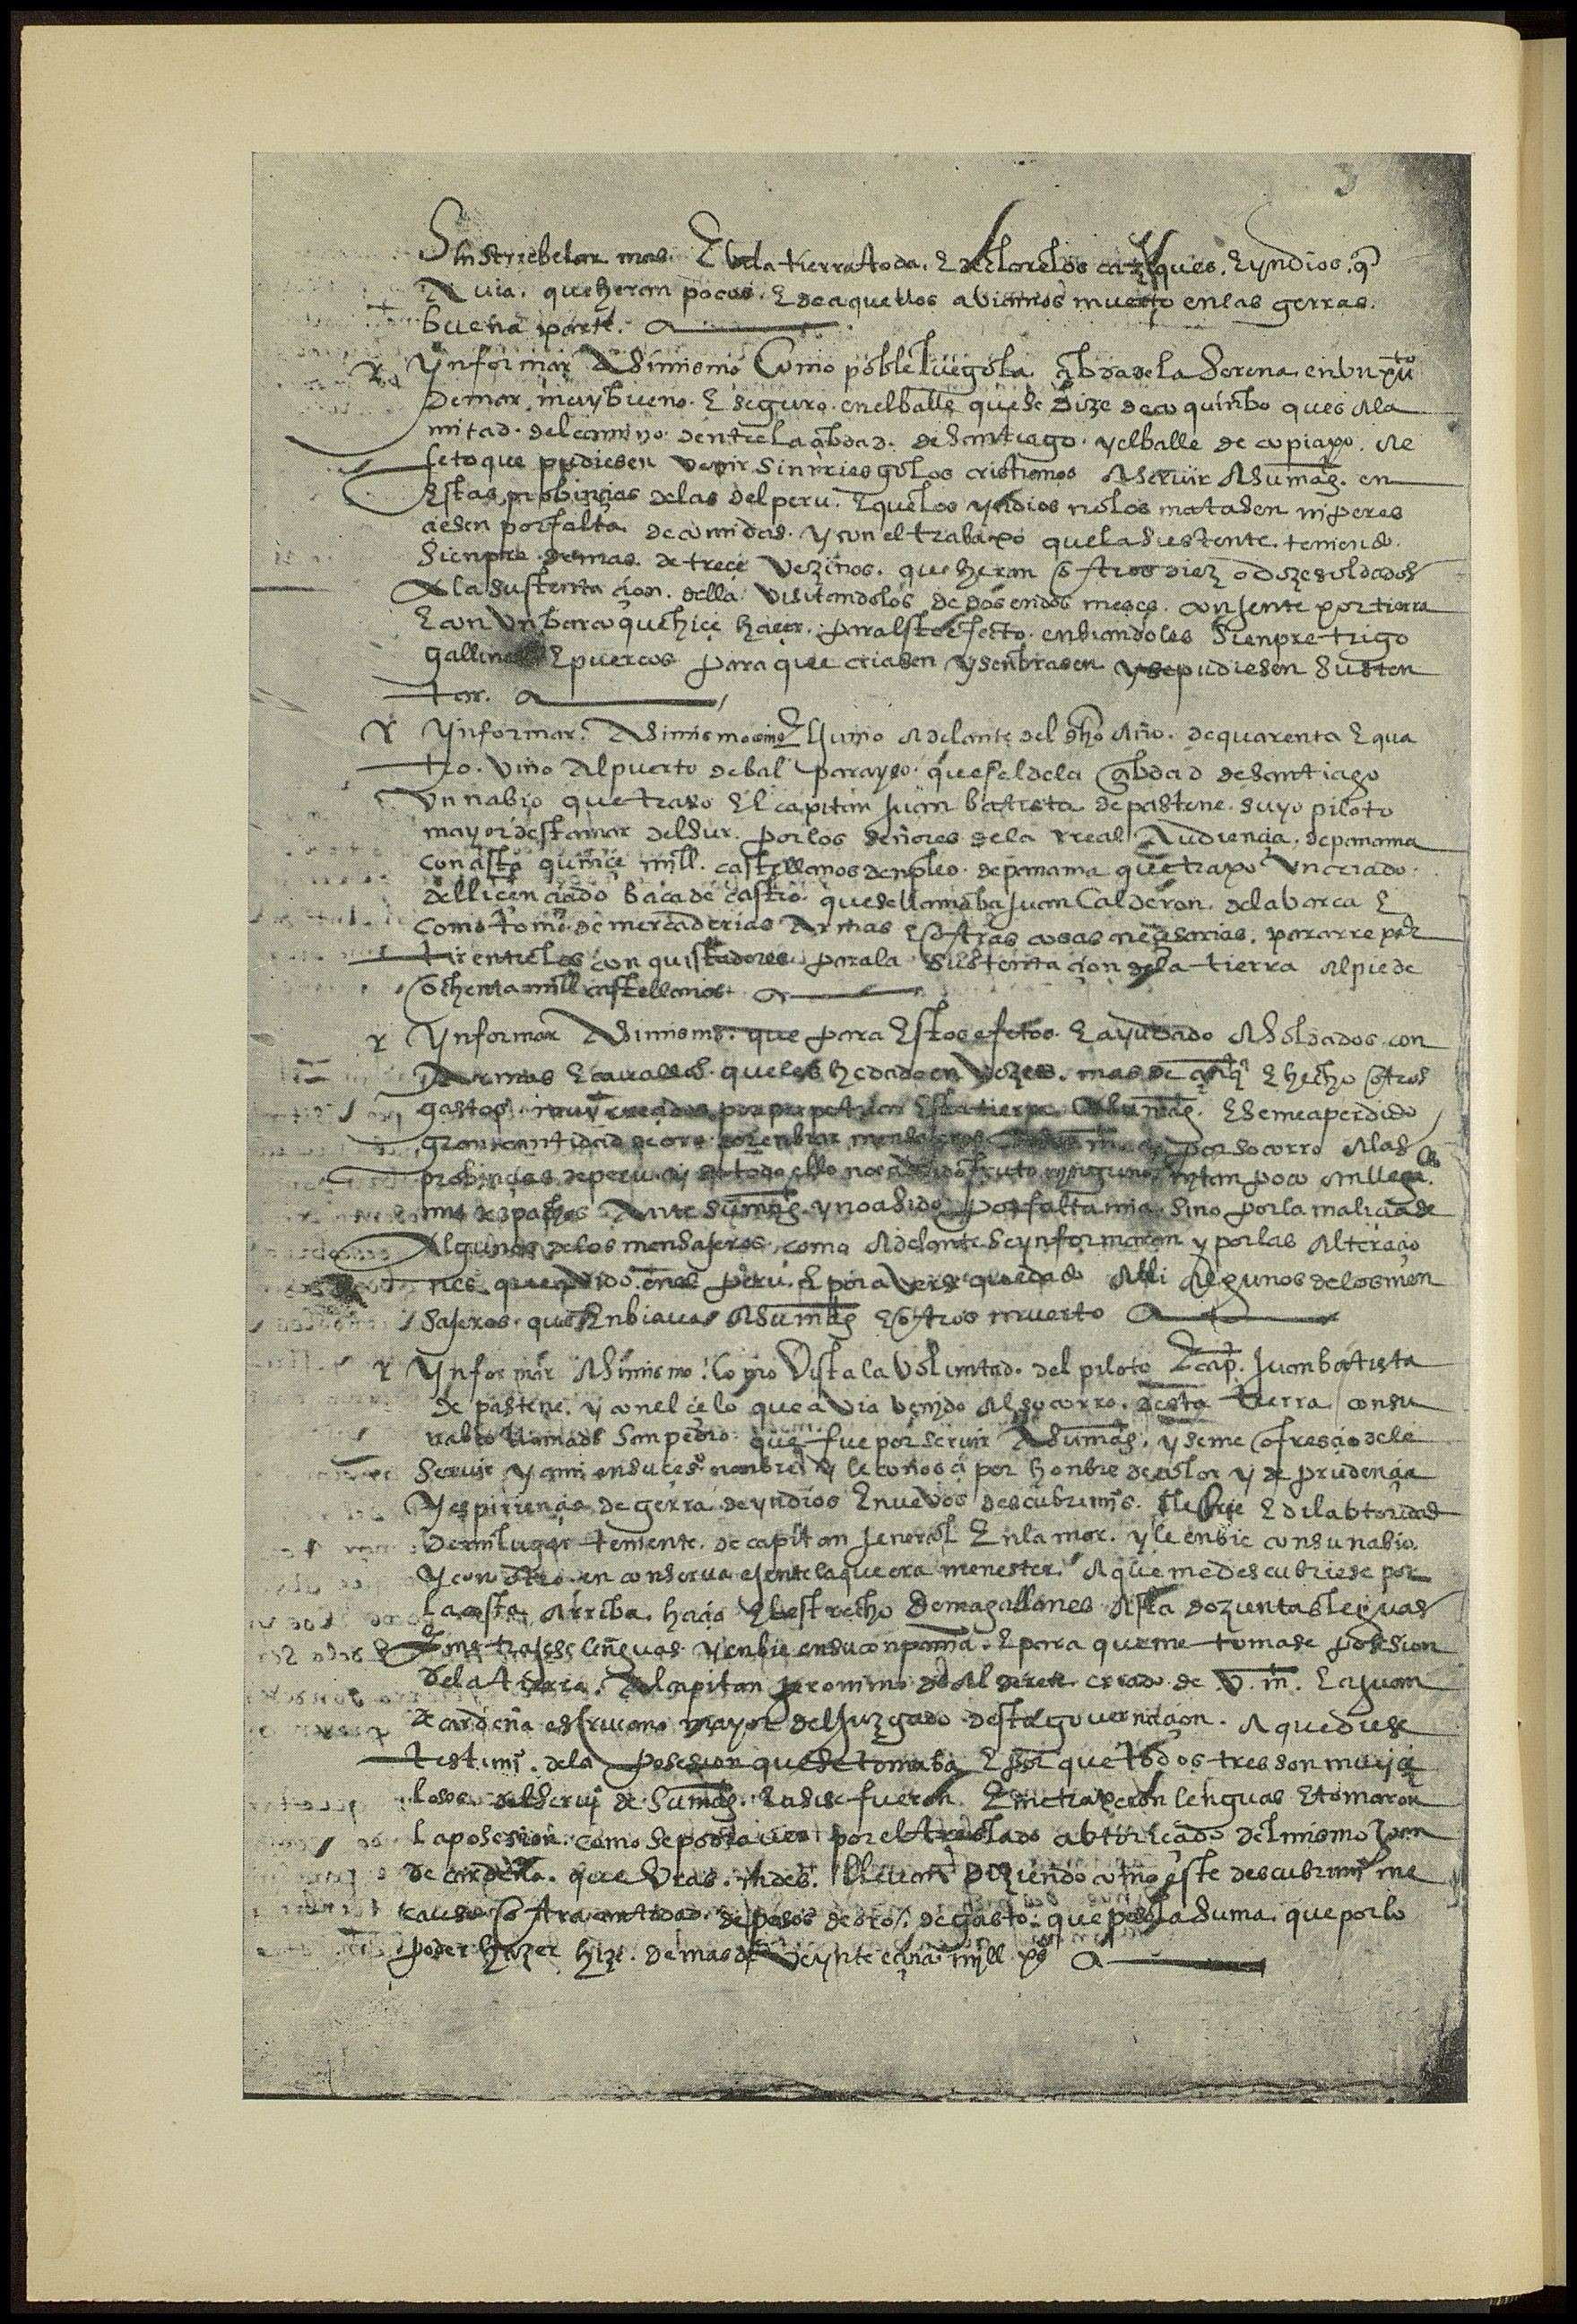 3
sin se rrebelar mas. E bela tierra toda. E declare los caziques. E yndios. q
Avia. que heran pocos. E de aquellos abiamos muerto en las gerras.
buena parte.
Ynformar Asimismo Como poble luego la cibdad de la Serena en un pu^to
de mar. muy bueno. E seguro. en el balle que se dize de coquinbo ques A la
mitad. del camino. dentre la cibdad. de Santiago. y el balle de copiapo. A e
feto que pudiesen venir sin rriesgo los cristianos A servir A su mag. en
Estas probincias de las del peru. E que los yndios no los matasen ni peres
ciesen por falta de comidas. y con el trabaxo que la sustente. teniendo.
Sienpre demas. de trece vezinos. que heran otros diez o doze soldados
A la sustentacion. della visitandolos de dos en dos meses. con jente por tierra
E con un barco que hice hacer. para este efecto. enbiandoles sienpre trigo
gallinas E puercos para que criasen y senbrasen y se pudiesen susten
tar.
Ynformar. Asimismo como E Junio Adelante del dho Año. de quarenta E qua
tro. vino Al puerto de balparayso. ques el de la cibdad de Santiago
un nabio que traxo El capitan Juan batista de pastene. suyo piloto
mayor desta mar del sur. por los señores de la rreal Audiencia. de panama
con asta quince mill. castellanos de npleo. de panama que traxo un criado.
del licenciado baca de castro. que se llamaba Juan Calderon. de la barca E
como tome de mercaderias Armas E otras cosas necesarias. para rrepar
tir entre los conquistadores para la sustentacion de la tierra Al pie de
ochenta mill castellanos
Ynformar Asimismo. que para Estos efetos. E ayudado A soldados con
Armas E cavallos. que les he dado en vezes. mas de E hecho otros
gastos. muy crecidos por perpetuar Esta tierra A su mag. E se me a perdido
gran cantidad de oro. por enbiar mensajeros por socorro A las
probincias de peru. y de todo ello no a sido fruto nynguno, ny tan poco An llegado
mis despachos Ante su mag. y no a sido por falta mia. sino por la malicia de
Algunos de los mensajeros. como Adelante se ynformaran y por las Alteracio
nes. que a avido. en el peru. E por averse quedado Alli Algunos de los men
sajeros. que Enbiava A su mag E otros muerto
Ynformar Asimismo. Como Vista la voluntad. del piloto E cap. Juan batista
de pastene. y con el celo que avia venido Al socorro. desta tierra con su
nabio llamado San pedro. que fue por servir A su mag. y se me ofrescio de le
servir y a mi en su ces.º nonbre y le conosci por honbre de valor y de prudencia
y espiriencia de gerra de yndios E nuevos descubrimis. le hize E di la abtoridad
de mi lugar teniente. de capitan jeneral En la mar. y le enbie con su nabio.
y con otro. en conserva e jente la que era menester. A que me descubriese por
la costa Arriba. hacia El estrecho de magallanes Asta dozientas leguas
E me trajese lenguas. y enbie en su conpania. E para que me tomase posesion
de la tierra. Al capitan geronimo de Alderete criado de V. m. E a juan
de cardeña escrivano mayor del juzgado desta governacion. A que diese
testimº. de la posesion que se tomaba E por que todos tres son muy ce
losos del servi de su mag. E ansi se fueron E me traxeron lenguas E tomaron
la posesion. como se podra ver por el treslado abtorizado del mismo juan
de cardeña. que vras. mdes. llevan diziendo como este descubrimi me
causo otra cantidad. de pesos de oro. de gasto. que pasa la suma. que por lo
poder hazer hize. de mas de veynte e cinco mill pº